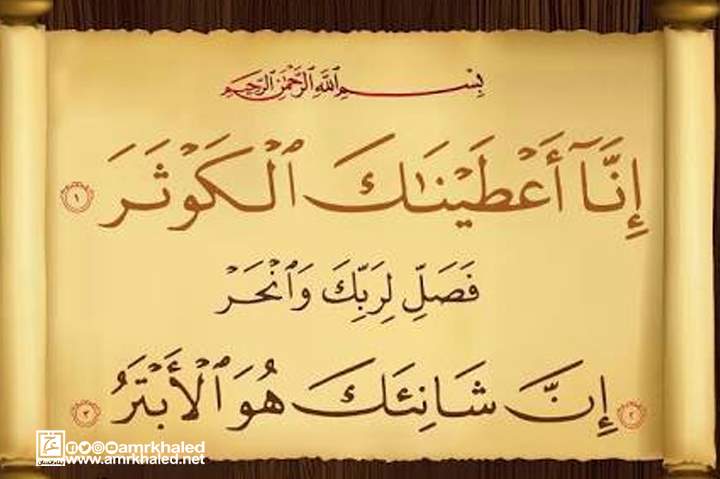 بِسْمِ ٱللَّهِ ٱلرَّحْمَٰنِ ٱلرَّحِيمِ
إِنَّآ أَعْطَيْنَٰكَ ٱلْكَوْثَرَ ١
فَصَلِّ لِرَبِّكَ وَٱنْحَرْ
٢ إِنَّ شَانِئَكَ هُوَ ٱلْأَبْتَرُ ٣
amrkhaled
www.amrkhaled.net